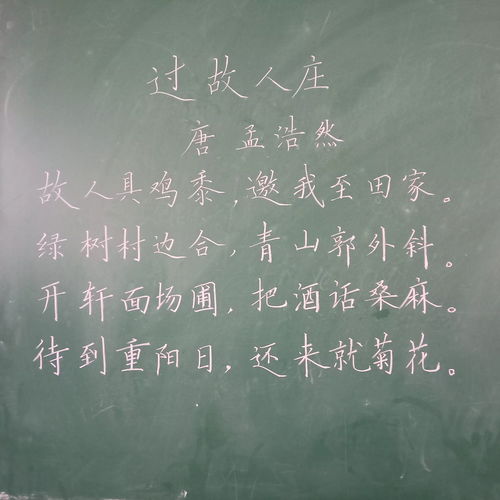 过故人庄
唐 孟浩然
故人具鸡黍,邀我至田家。
绿树村边合,青山郭外斜。
开轩面场圃,把酒话桑麻。
待到重阳日,还来就菊花。